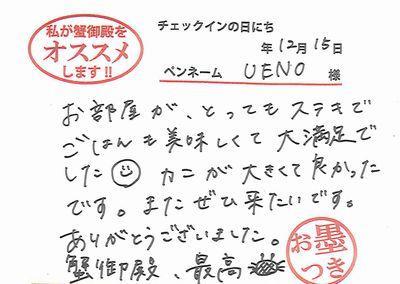 私が蟹御殿を
オススメ
します!!
チェックインの日にち
年 12月 15日
ペンネーム UENO 様
お部屋が、とってもステキで
ごはんも美味しくて大満足で
した カニが大きくて良かった
です。またぜひ来たいです。
ありがとうございました。
蟹御殿、最高
お墨
つき